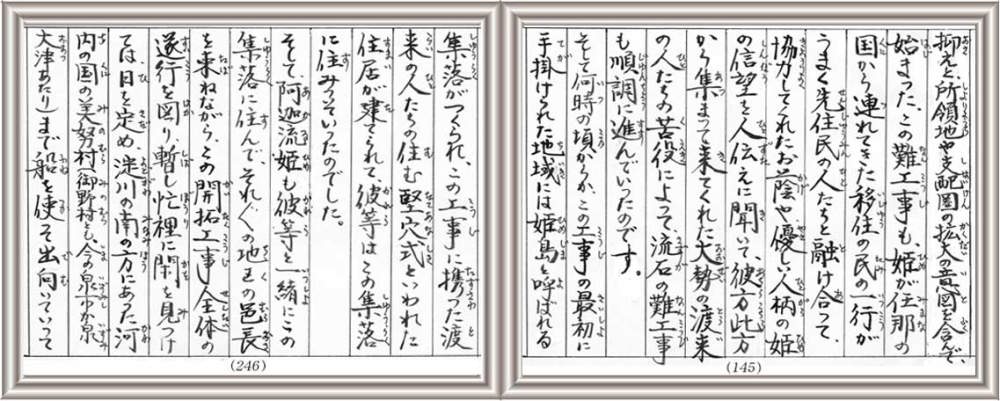 抑えと、所領地や支配圏の拡大の意図を含んで、
始まった、この難工事も、姫が任那の
国から連れてきた移住の民の一行が
うまく先住民の人たちと融け合って、
協力してくれたお蔭や、優しい人柄の姫
の信望を人伝えに聞いて、彼方此方
から集まって来てくれた大勢の渡来
の人たちの苦役によって、流石の難工事
も順調に進んでいったのです。
そして何時の頃からか、この工事の最初に
手掛けられた地域には姫島と呼ばれる
(145)
集落がつくられ、この工事に携った渡
来の人たちの住む竪穴式といわれた
住居が建てられて、彼等はこの集落
に住みついていったのでした。
そして、阿迦流姫も彼等と一緒にこの
集落に住んで、それぞれの地王の邑長
を兼ねながら、この開拓工事全体の
遂行を図り、暫し忙裡に閑を見つけ
ては、日を定め、淀川の南の方にあった河
内の国の美努村(御野村とも、今の泉市か泉
大津あたり)まで船を使って出向いていって
(246)